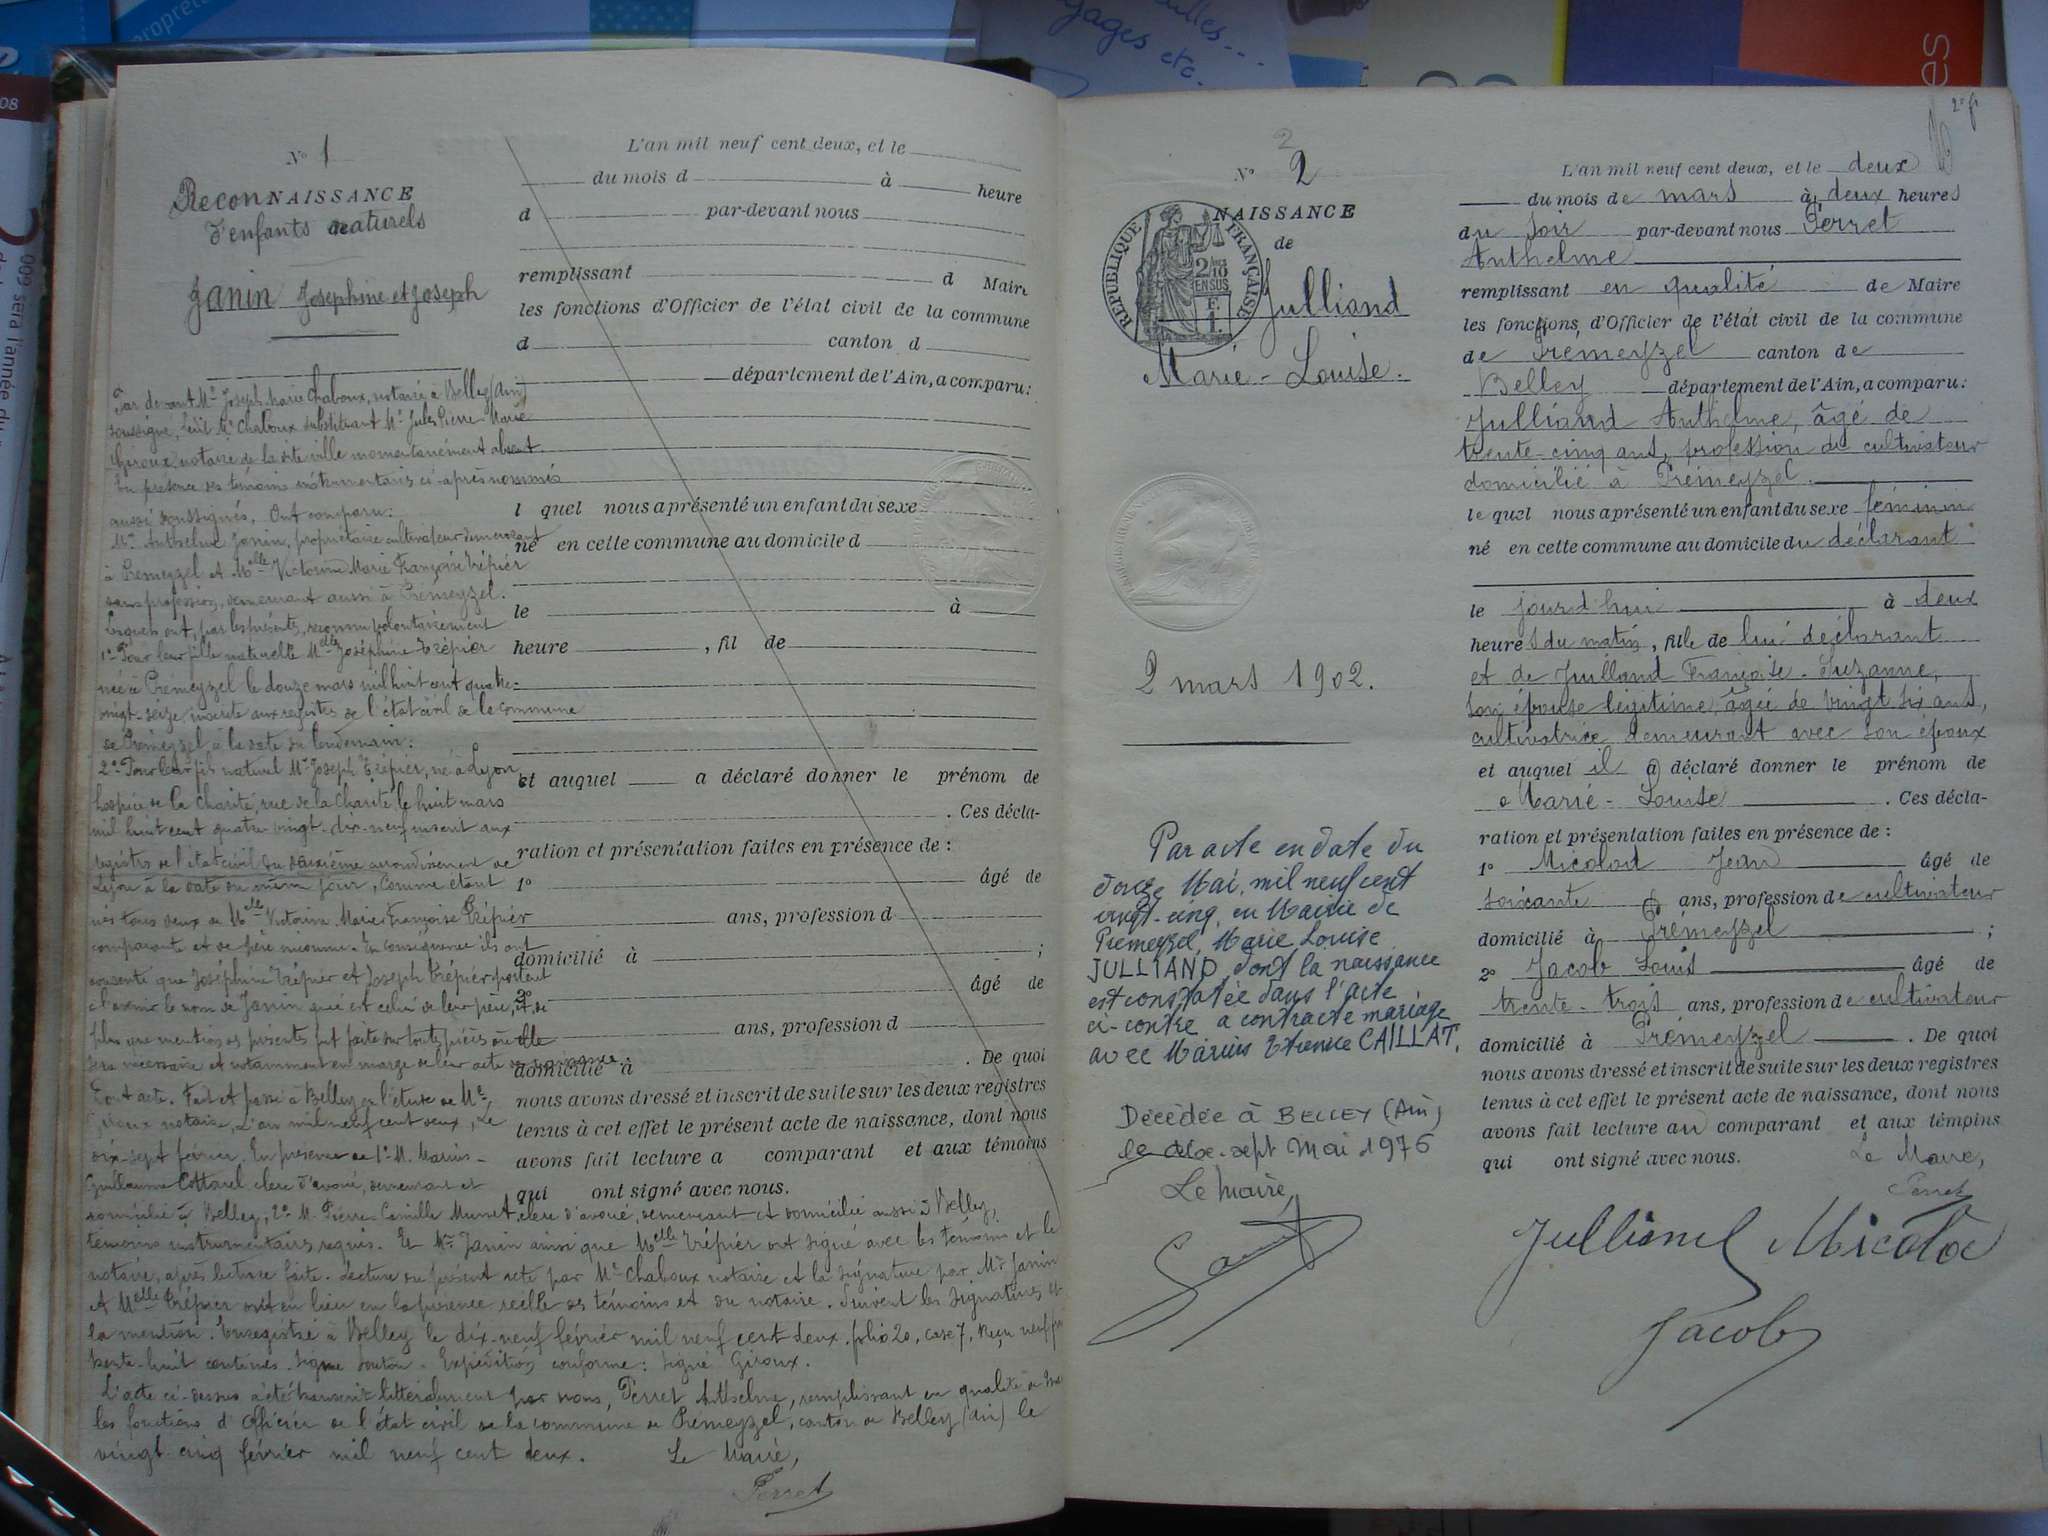 N° 1
RECONNAISSANCE
d'enfants naturels
Janin Joséphine et Joseph
Par devant Me Joseph Marie Chaboux, notaire à Belley (Ain)
soussigné, ledit Me Chaboux substituant Me Jules Pierre Marie
Giroux notaire de la dite ville momentanément absent.
En présence des témoins instrumentaires ci-après nommés
aussi soussignés. Ont comparu:
Mr Anthelme Janin, propriétaire cultivateur demeurant
à Prémeyzel et Melle Victorine Marie Françoise Trépier
sans profession, demeurant aussi à Prémeyzel.
Lesquels ont, par les présentes, reconnu volontairement
1° Pour leur fille naturelle Melle Joséphine Trépier
née à Prémeyzel le douze mars mil huit cent quatre-
vingt-seize inscrite aux registres de l'état civil de la commune
de Prémeyzel à la date du lendemain:
2° Pour leur fils naturel Mr Joseph Trépier, né à Lyon
hospice de la Charité, rue de la Charité le huit mars
mil huit cent quatre vingt-dix-neuf inscrit aux
registres de l'état civil du deuxième arrondissement de
Lyon à la date du même jour, comme étant
nés tous deux de Melle Victorine Marie Françoise Trépier
comparante et de père inconnu. En conséquence ils ont
consenti que Joséphine Trépier et Joseph Trépier portent
à l'avenir le nom de Janin qui est celui de leur père, et de
plus une mention des présentes soit faite sur toutes pièces où elle
sera nécessaire et notamment en marge de leur acte de naissance.
Dont acte. Fait et passé à Belley en l'étude de Me
Giroux notaire, L'an mil neuf cent deux, le
dix-sept février. En présence de 1° M. Marius-
Guillaume Cottarel clerc d'avoué, demeurant et
domicilié à Belley, 2° M. Pierre-Camille Munet clerc d'avoué, demeurant et domicilié aussi à Belley,
témoins instrumentaires requis. Et Mr Janin ainsi que Melle Trépier ont signé avec les témoins et le
notaire, après lecture faite. Lecture du présent acte par Me Chaboux notaire et la signature par Mr Janin
et Melle Trépier ont eu lieu en la présence réelle des témoins et du notaire. Suivent les signatures et
la mention: Enregistré à Belley le dix-neuf février mil neuf cent deux. folio 20, case 7, Reçu neuf
trente-huit centimes. Signé Expédition conforme: signé Giroux.
L'acte ci-dessus a été transcrit littéralement par nous, Perret Anthelme, remplissant en qualité de
les fonctions d'Officier de l'état civil de la commune de Prémeyzel, canton de Belley (Ain) le
vingt-cinq février mil neuf cent deux. Le Maire,
Perret
L'an mil neuf cent deux, et le
du mois d à heure
d par-devant nous
remplissant d Maire
les fonctions d'Officier de l'état civil de la commune
d canton d
département de l'Ain, a comparu:
l quel nous a présenté un enfant du sexe
né en cette commune au domicile d
le à
heure , fil de
et auquel a déclaré donner le prénom de
. Ces décla-
ration et présentation faites en présence de:
1° âgé de
ans, profession d
domicilié à ;
2° âgé de
ans, profession d
domicilié à . De quoi
nous avons dressé et inscrit de suite sur les deux registres
tenus à cet effet le présent acte de naissance, dont nous
avons fait lecture a comparant et aux témoins
qui ont signé avec nous.
2
N° 2
NAISSANCE
de
REPUBLIQUE FRANÇAISE
EN SUS
Julliand
Marie-Louise.
2 mars 1902.
Par acte en date du
douze Mai, mil neuf cent
vingt-cinq, en Mairie de
Prémeyzel, Marie Louise
JULLIAND, dont la naissance
est constatée dans l'acte
ci-contre a contracté mariage
avec Marius Etienne CAILLAT.
Décédée à BELLEY (Ain)
le dix-sept Mai 1976
Le Maire,
L'an mil neuf cent deux, et le deux
du mois de mars à deux heures
du soir par-devant nous Perret
Anthelme
remplissant en qualité de Maire
les fonctions d'Officier de l'état civil de la commune
de Prémeyzel canton de
Belley département de l'Ain, a comparu:
Julliand Anthelme, âgé de
trente-cinq ans, profession de cultivateur
domicilié à Prémeyzel.
lequel nous a présenté un enfant du sexe féminin
né en cette commune au domicile du déclarant
le jourd'hui à deux
heures du matin, fille de lui déclarant
et de Juilland Françoise-Suzanne,
son épouse légitime, âgée de vingt six ans,
cultivatrice demeurant avec son époux
et auquel il a déclaré donner le prénom de
Marie-Louise . Ces décla-
ration et présentation faites en présence de:
1° Micolod Jean âgé de
soixante ans, profession de cultivateur
domicilié à Prémeyzel ;
2° Jacob Louis âgé de
trente-trois ans, profession de cultivateur
domicilié à Prémeyzel . De quoi
nous avons dressé et inscrit de suite sur les deux registres
tenus à cet effet le présent acte de naissance, dont nous
avons fait lecture au comparant et aux témoins
qui ont signé avec nous. Le Maire,
Perret
Julliand Micolod
Jacob